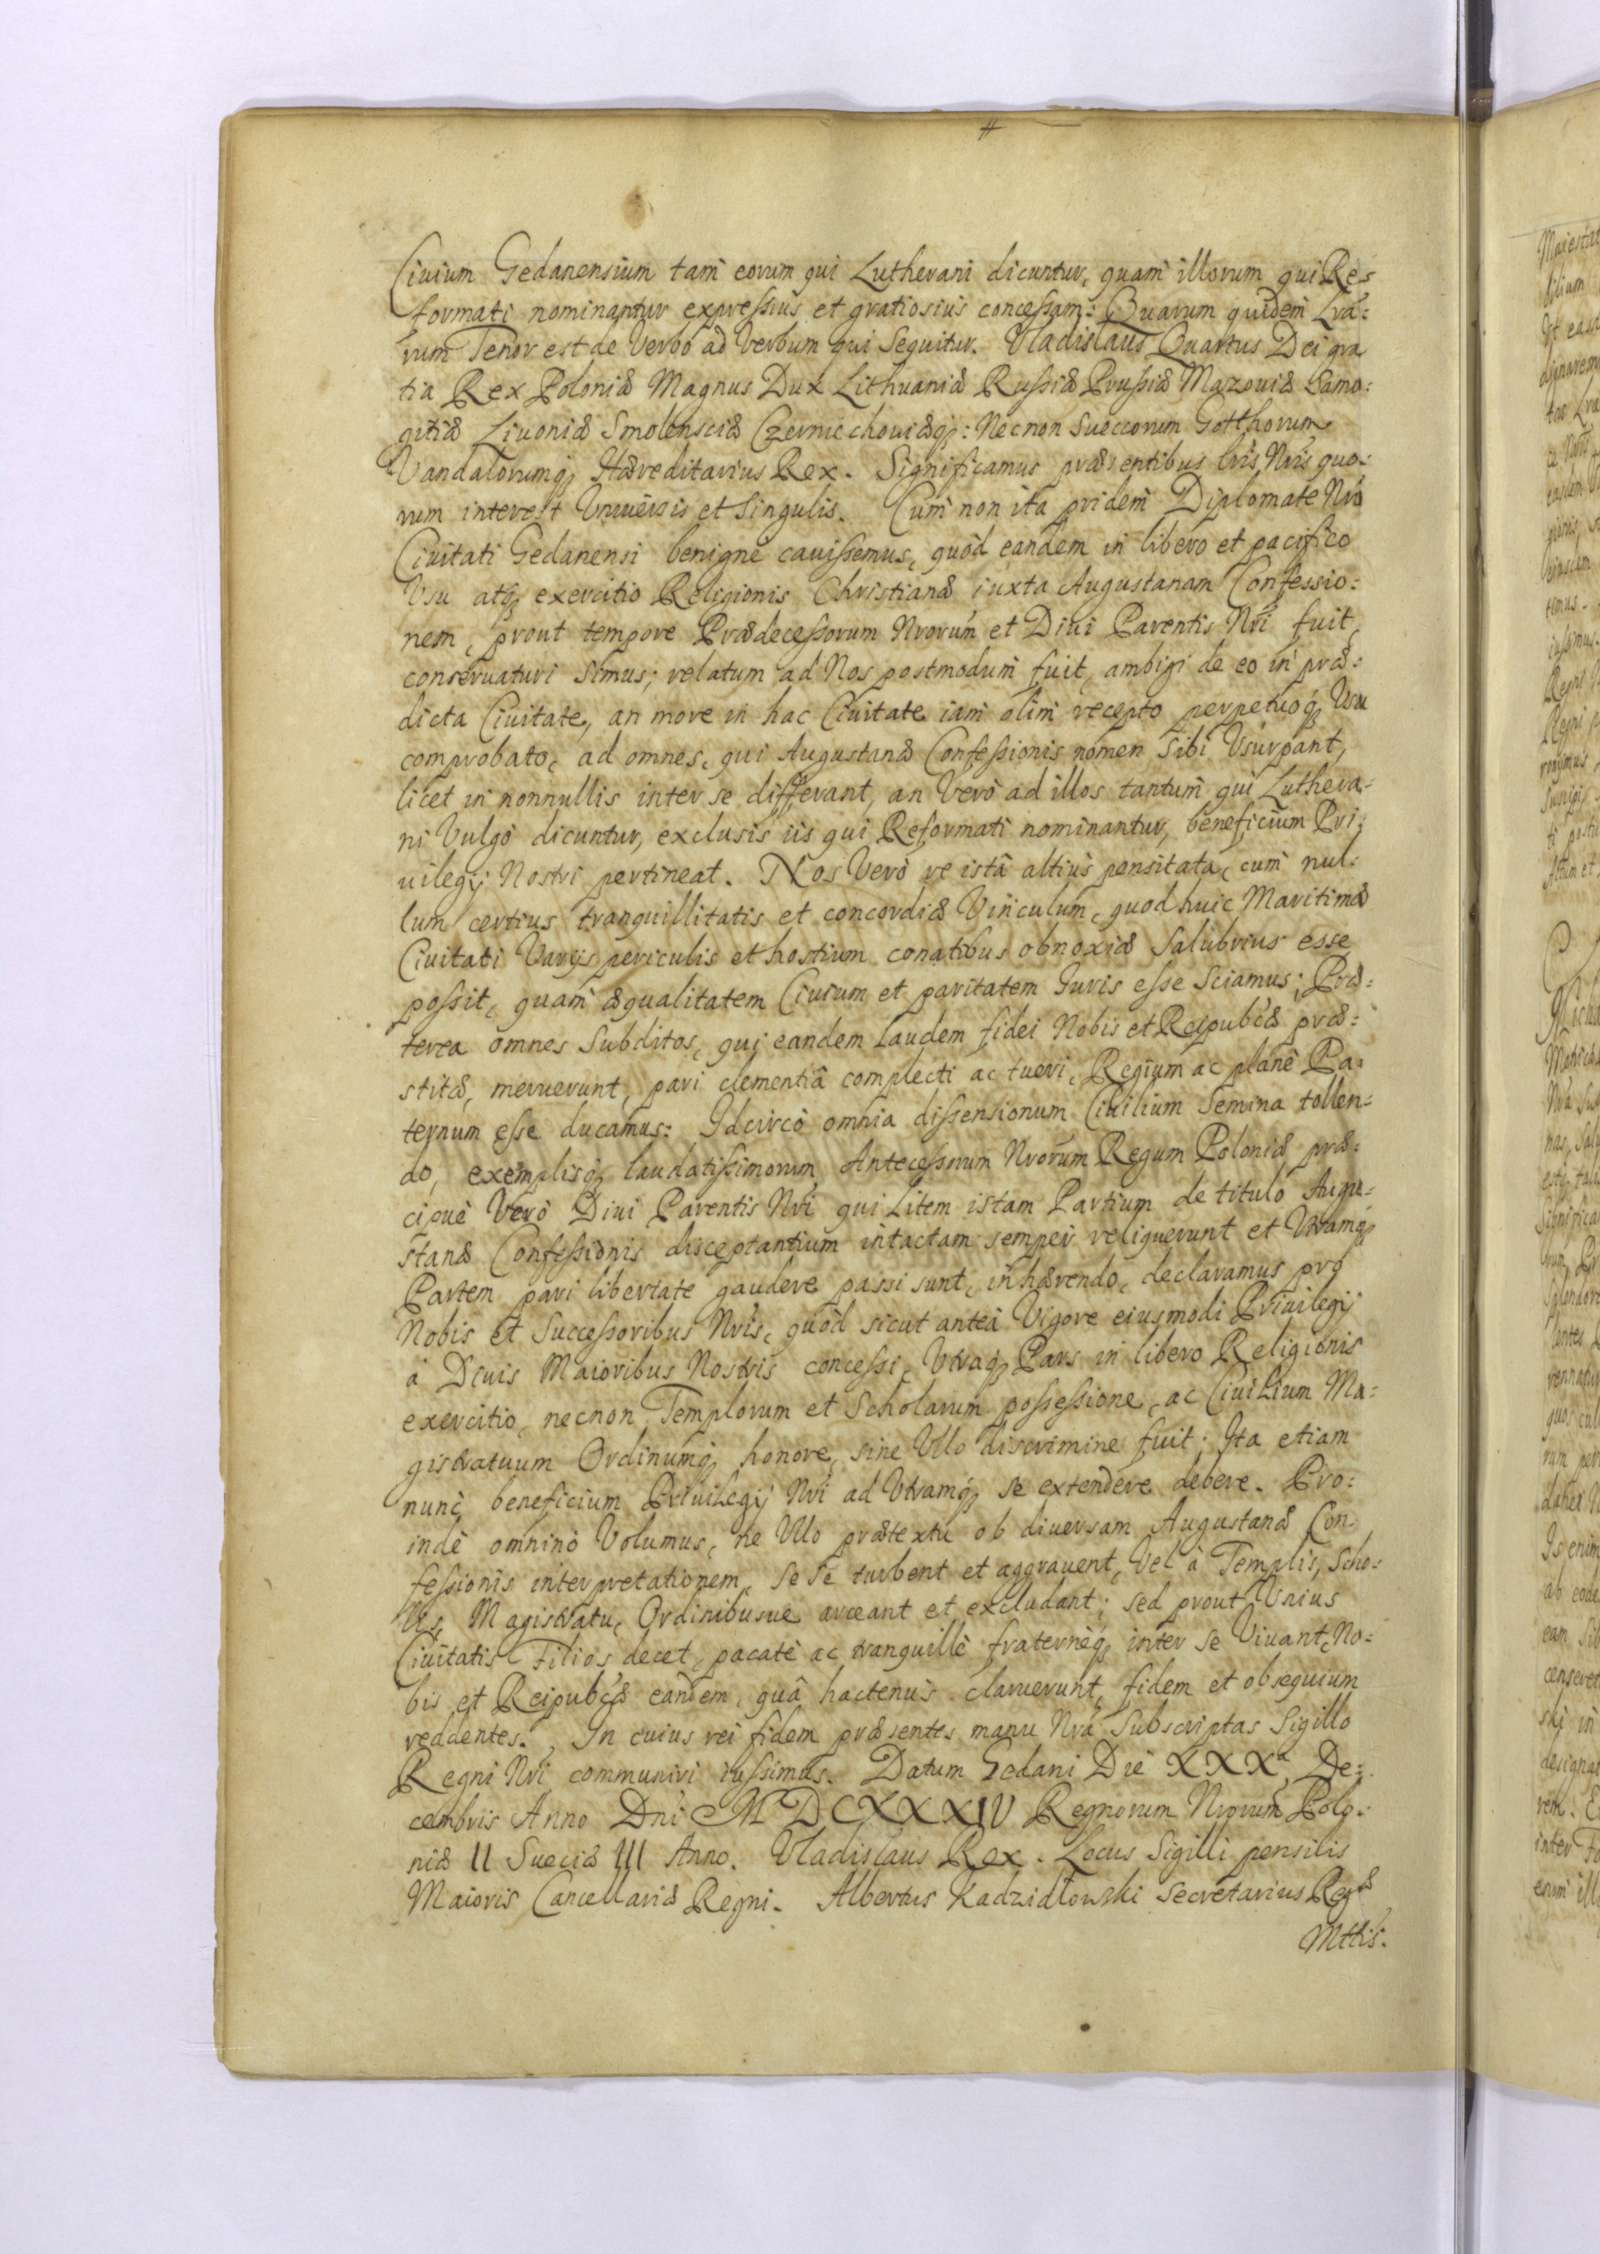 Ciuium Gedanensium tam eorum qui Lutherani dicuntur, quam illorum qui Re:
formati nominantur expressius et gratiosius concessam: Quarum quidem Lra:
rum Tenor est de Verbo ad Verbum qui Sequitur. Vladislaus Quartus Dei gra
tia Rex Poloniæ Magnus Dux Lithuaniæ Russiæ Prussiæ Mazouiæ Samo:
gitiæ Liuoniæ Smolensciæ Czerniechouiæq;: Necnon Sueccorum Gotthorum
Vandalorumq; Hæreditarius Rex. Significamus præsentibus lris Nris quo:
rum interest Vniuersis et Singulis. Cum non ita pridem Diplomate Nro
Ciuitati Gedanensi benigne cauissemus, quòd eandem in libero et pacifico
Vsu atq; exercitio Religionis Christianæ iuxta Augustanam Confessio:
nem, prout tempore Prædecessorum Nrorum et Diui Parentis Nri fuit,
conseruaturi Simus; relatum ad Nos postmodum fuit, ambigi de eo in præ:
dicta Ciuitate, an more in hac Ciuitate iam olim recepto perpetuoq; Vsu
comprobato, ad omnes, qui Augustanæ Confessionis nomen Sibi Vsurpant,
licet in nonnullis inter se differant, an Verò ad illos tantum qui Luthera:
ni Vulgò dicuntur, exclusis iis qui Reformati nominantur, beneficium Pri:
uilegij Nostri pertineat. Nos Verò re istâ altiùs pensitata, cum nul:
lum certius tranquillitatis et concordiæ Vinculum, quod huic Maritimæ
Ciuitati Varijs periculis et hostium conatibus obnoxiæ Salubrius esse
possit, quam æqualitatem Ciuium et paritatem Iuris esse Sciamus; Præ:
terea omnes Subditos, qui eandem laudem fidei Nobis et Reipubcæ præ:
stitæ, meruerunt, pari clementiâ complecti ac tueri, Regium ac planè Pa:
ternum esse ducamus: Idcircò omnia dissensionum Ciuilium Semina tollen:
do, exemplisq; laudatissimorum Antecessorum Nrorum Regum Poloniæ præ:
cipuè Verò Diui Parentis Nri qui Litem istam Partium de titulo Augu:
stanæ Confessionis disceptantium intactam semper reliquerunt et Vtramq;
Partem pari libertate gaudere passi sunt, inhærendo, declaramus pro
Nobis et Successoribus Nris, quòd sicut anteà Vigore eiusmodi Priuilegij
à Diuis Maioribus Nostris concessi, Vtraq; Pars in libero Religionis
exercitio, necnon Templorum et Scholarum possessione, ac Ciuilium Ma:
gistratuum Ordinumq; honore, sine Vllo discrimine fuit; Ita etiam
nunc beneficium Priuilegij Nri ad Vtramq; se extendere debere. Pro:
indè omninò Volumus, ne Vllo prætextu ob diuersam Augustanæ Con:
fessionis interpretationem, Se Se turbent et aggrauent, Vel à Templis, Scho:
lis, Magistratu, Ordinibusue arceant et excludant; sed prout Vnius
Ciuitatis Filios decet, pacatè ac tranquillè fraternèq; inter se Viuant, No:
bis et Reipubcæ eandem, quâ hactenus claruerunt, fidem et obsequium
reddentes. In cuius rei fidem præsentes manu Nrâ Subscriptas Sigillo
Regni Nri communiri iussimus. Datum Gedani Die XXXa De:
cembris Anno Dni MDCXXXIV Regnorum Nrorum Polo:
niæ II Sueciæ III Anno. Vladislaus Rex. Locus Sigilli pensilis
Maioris Cancellariæ Regni. Albertus Kadzidłowski Secretarius Regæ
Mttis.